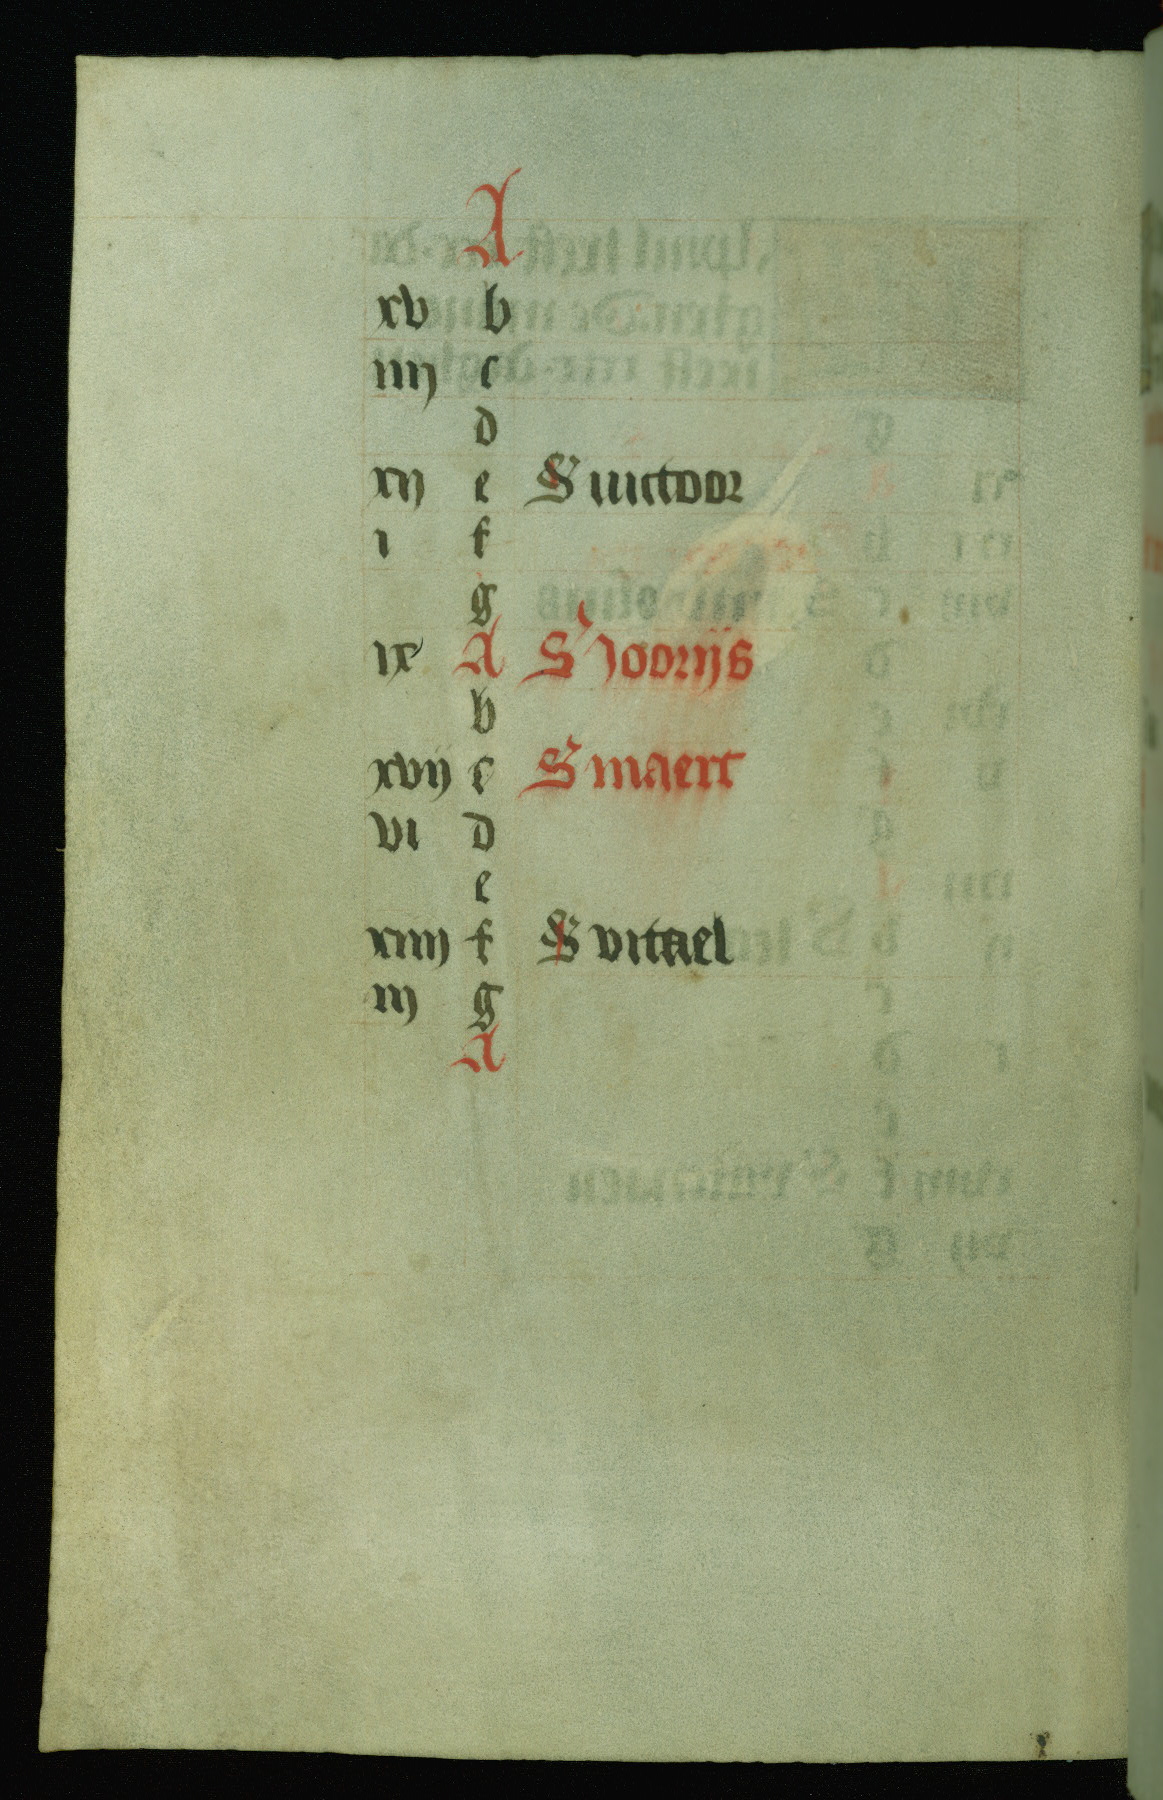 A
xv b
iiij c
d
xij e S victoor
i f
g
ix A S Joorijs
b
xvij c S maert
vi d
e
xiiij f S vitael
iij g
A